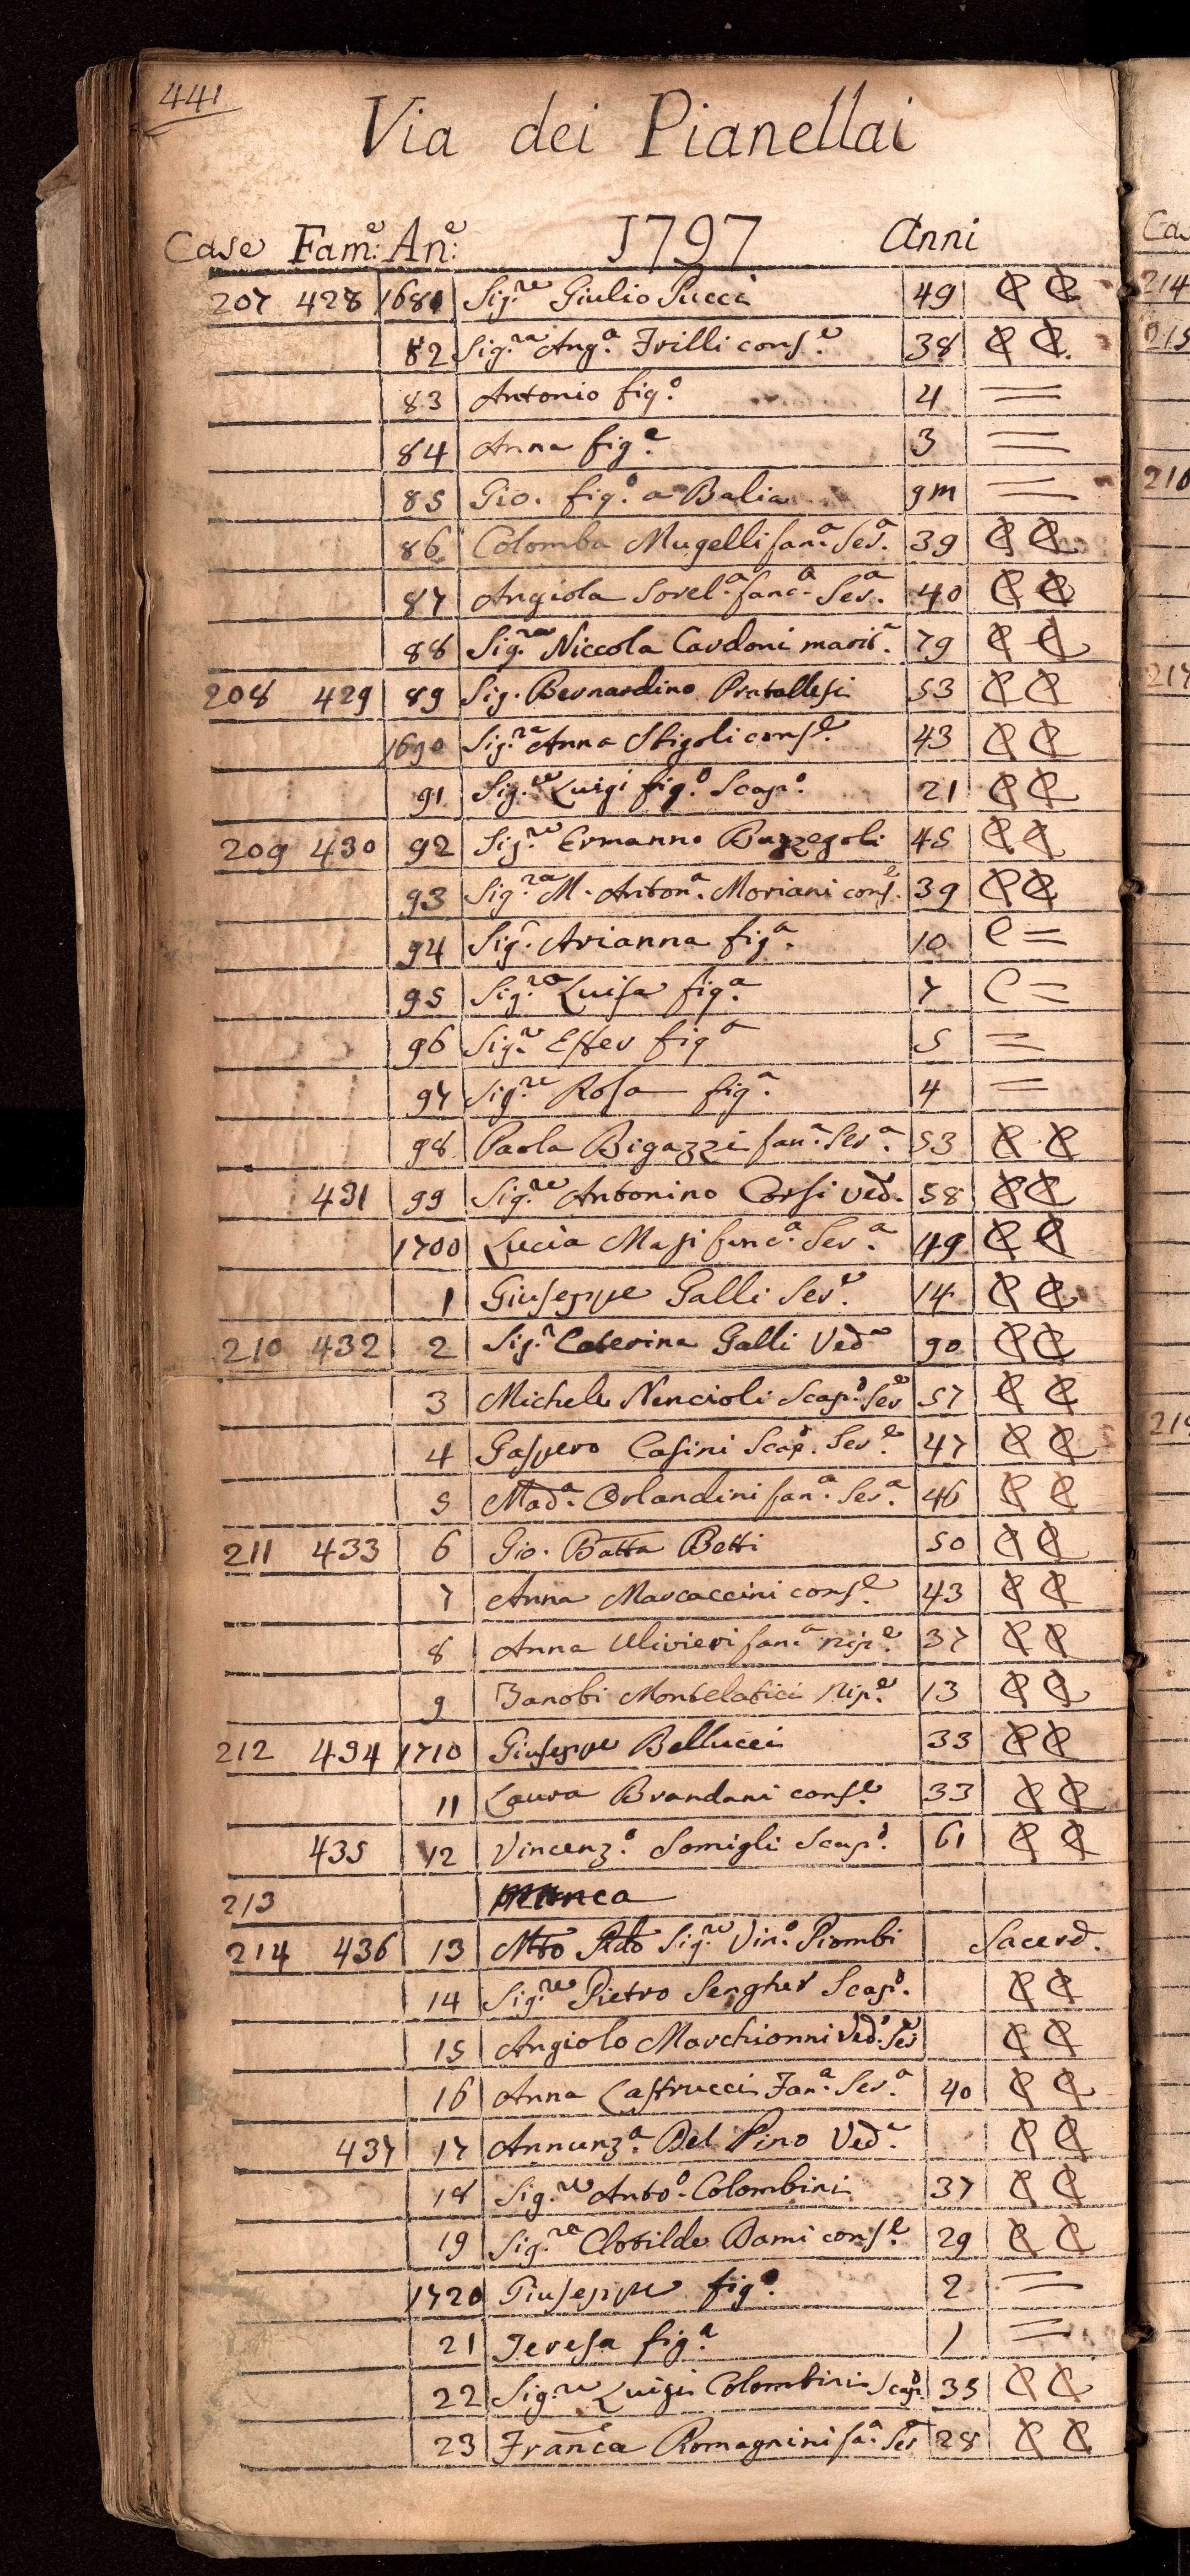 441
Via dei Pianellai
Case Fam:e An:e 1797 Anni
207 428 1681 Sig.re Giulio Pucci 49 C C
82 Sig.ra Ang.a Frilli cons.e 38 C C
83 Antonio fig.o 4 =
84 Anna fig.a 3 =
85 Gio. fig.o a Balia 9m =
86 Colomba Mugelli fan.a Ser.a 39 C C
87 Angiola Sorel.a fanc.a Ser.a 40 C C
88 Sig.ra Niccola Cardoni marit.a 79 C C
208 429 89 Sig. Bernardino Pratellesi 53 C C
1690 Sig.ra Anna Stigoli cons.e 43 C C
91 Sig.re Luigi fig.o Scap.o 21 C C
209 430 92 Sig.re Ermanno Buzzegoli 45 C C
93 Sig.ra M. Anton.a Moriani cons.e 39 C C
94 Sig.r Arianna fig.a 10 C =
95 Sig.ra Luisa fig.a 7 C =
96 Sig.re Ester fig.a 5 =
97 Sig.re Rosa fig.a 4 =
98 Paola Bigazzi fan.a Ser.a 53 C C
431 99 Sig.re Antonino Corsi ved.o 58 C C
1700 Lucia Masi fanc.a Ser.a 49 C C
1 Giuseppe Galli Ser.e 14 C C
210 432 2 Sig.r Caterina Galli Ved.a 90 C C
3 Michele Nencioli Scap.o Ser.e 57 C C
4 Gaspero Casini Scap.o Ser.e 47 C C
5 Mad.a Orlandini fan.a Ser.a 46 C C
211 433 6 Gio. Batta Betti 50 C C
7 Anna Marcaccini cons.e 43 C C
8 Anna Ulivieri fan.a nip.e 37 C C
9 Zanobi Montelatici Nip.e 13 C C
212 434 1710 Giuseppe Bellucci 33 C C
11 Laura Brandani cons.e 33 C C
435 12 Vincenz.o Somigli Scap.o 61 C C
213 manca
214 436 13 Mto Rdo Sig.re Vin.o Piombi Sacerd.
14 Sig.re Pietro Sengher Scap.o C C
15 Angiolo Marchionni Ved.o Ser.e C C
16 Anna Castrucci Fan.a Ser.a 40 C C
437 17 Annunz.a Del Pino Ved.a C C
18 Sig.re Anto.o Colombini 37 C C
19 Sig.ra Clotilde Dami cons.e 29 C C
1720 Giuseppe fig.o 2 =
21 Teresa fig.a 1 =
22 Sig.re Luigi Colombini Scap.o 35 C C
23 Fran.ca Romagnini fa.a Ser.a 28 C C
214
215